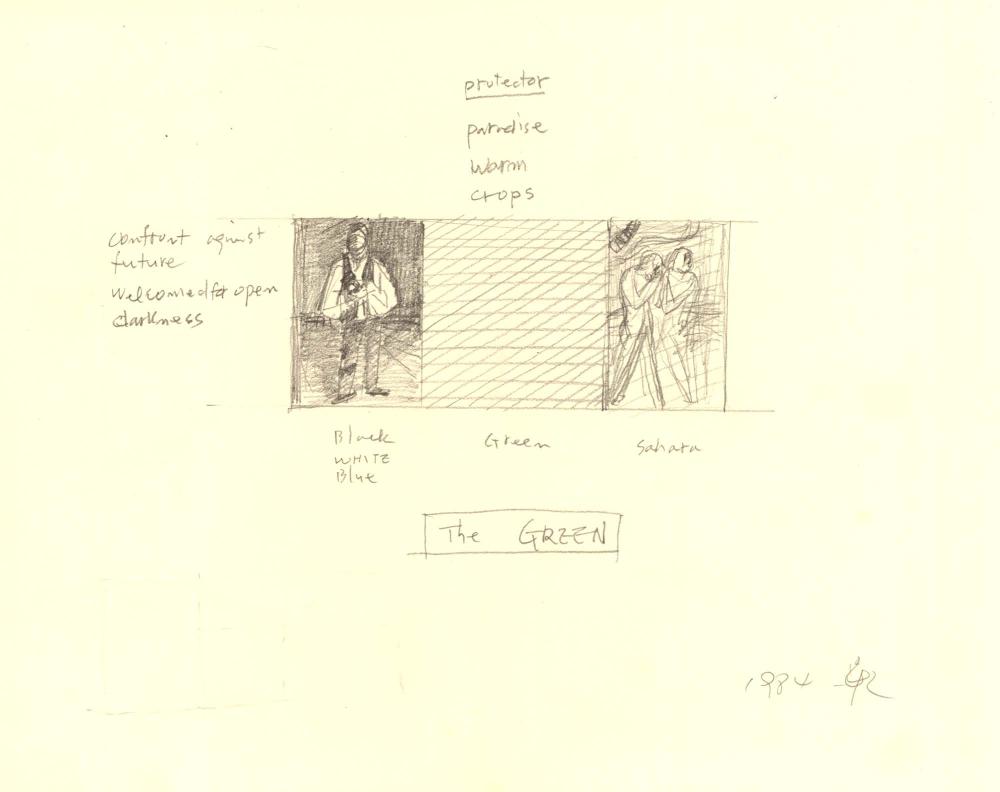 protector
paradise
warm
crops
confront against
future
welcomed for open
darkness
Black
WHITE
Blue
Green
Sahara
The GREEN
1984